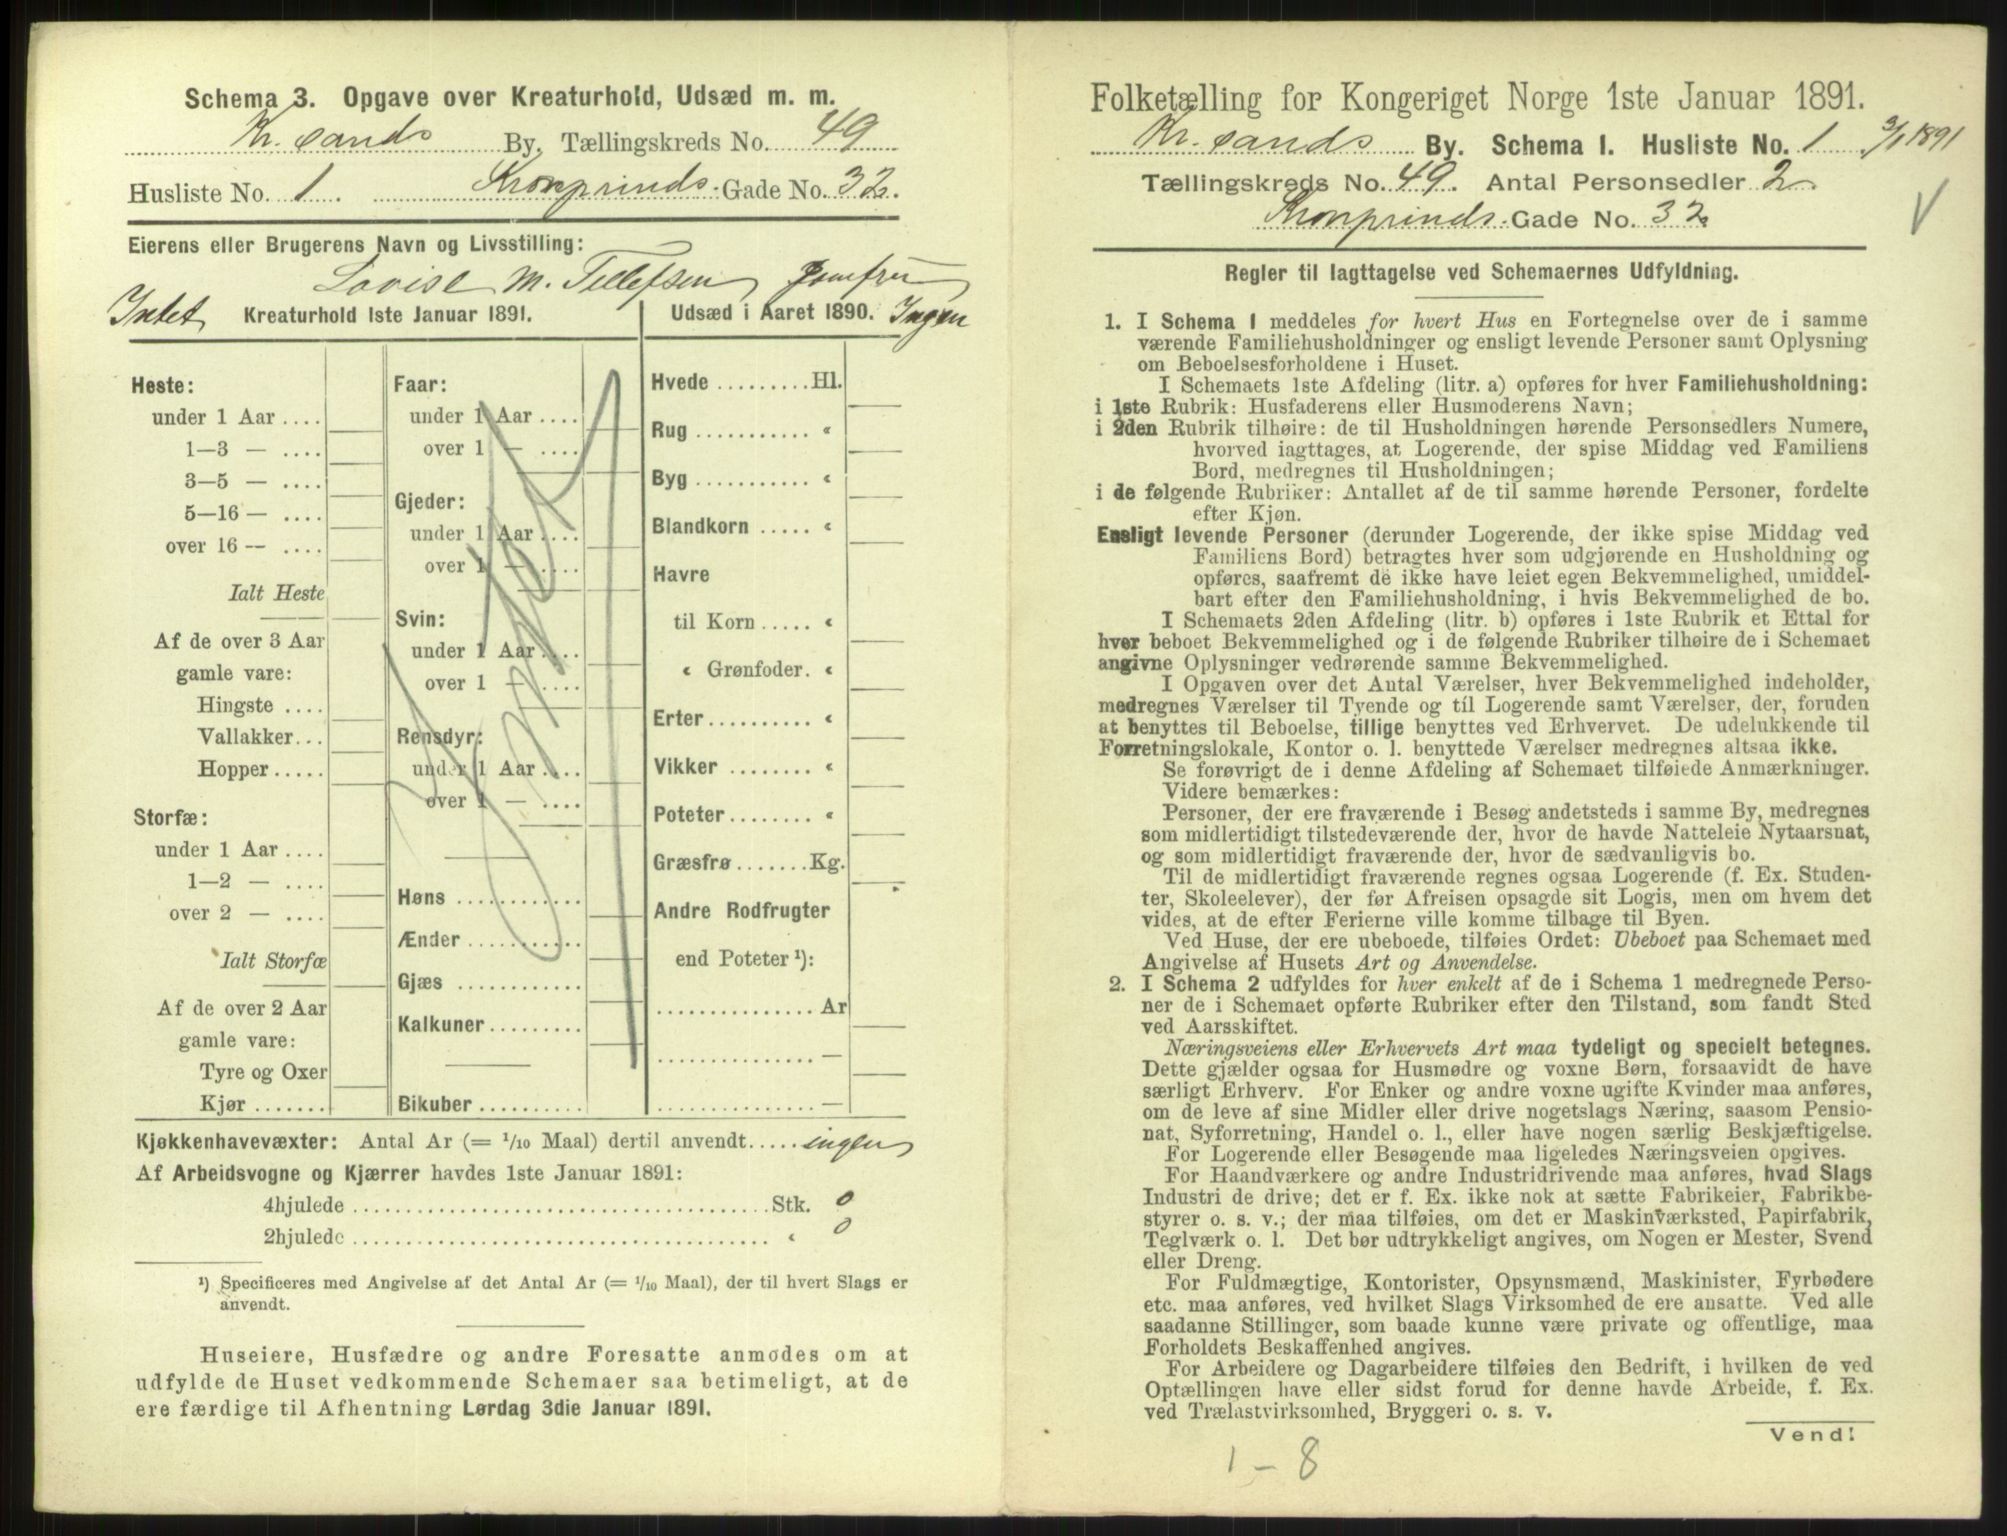 Schema 3. Opgave over Kreaturhold, Udsæd m. m.
Kr. sands By. Tællingskreds No. 49
Husliste No. 1. Kronprinds. Gade No. 32.
Eierens eller Brugerens Navn og Livsstilling:
Lovise M. Tellefsen Jomfru
Intet Kreaturhold 1ste Januar 1891.
Udsæd i Aaret 1890. Ingen
Heste:
under 1 Aar ....
1—3 — ....
3—5 — ....
5—16 — ....
over 16 — ....
Ialt Heste
Af de over 3 Aar
gamle vare:
Hingste ....
Vallakker...
Hopper.....
Storfæ:
under 1 Aar ....
1—2 — ....
over 2 — ....
Ialt Storfæ
Af de over 2 Aar
gamle vare:
Tyre og Oxer
Kjør .......
Faar:
under 1 Aar ....
over 1 — ....
Gjeder:
under 1 Aar ....
over 1 — ....
Svin:
under 1 Aar ....
over 1 — ....
Rensdyr:
under 1 Aar ....
over 1 — ....
Høns ............
Ænder ...........
Gjæs ............
Kalkuner.........
Bikuber..........
Hvede .........Hl.
Rug ........... «
Byg ........... «
Blandkorn ..... «
Havre
til Korn ..... «
« Grønfoder. «
Erter.......... «
Vikker ........ «
Poteter........ «
Græsfrø .......Kg.
Andre Rodfrugter
end Poteter ¹):
............... Ar
............... —
............... —
Kjøkkenhavevæxter: Antal Ar (= 1/10 Maal) dertil anvendt..... ingen
Af Arbeidsvogne og Kjærrer havdes 1ste Januar 1891:
4hjulede ....................................Stk. 0
2hjulede .................................... « 0
¹) Specificeres med Angivelse af det Antal Ar (= 1/10 Maal), der til hvert Slags er
anvendt.
Huseiere, Husfædre og andre Foresatte anmodes om at
udfylde de Huset vedkommende Schemaer saa betimeligt, at de
ere færdige til Afhentning Lørdag 3die Januar 1891.
Folketælling for Kongeriget Norge 1ste Januar 1891.
Kr. sands By. Schema I. Husliste No. 1 3/1 1891
Tællingskreds No. 49. Antal Personsedler 2
Kronprinds. Gade No. 32
Regler til Iagttagelse ved Schemaernes Udfyldning.
1. I Schema 1 meddeles for hvert Hus en Fortegnelse over de i samme
værende Familiehusholdninger og ensligt levende Personer samt Oplysning
om Beboelsesforholdene i Huset.
I Schemaets 1ste Afdeling (litr. a) opføres for hver Familiehusholdning:
i 1ste Rubrik: Husfaderens eller Husmoderens Navn;
i 2den Rubrik tilhøire: de til Husholdningen hørende Personsedlers Numere,
hvorved iagttages, at Logerende, der spise Middag ved Familiens
Bord, medregnes til Husholdningen;
i de følgende Rubriker: Antallet af de til samme hørende Personer, fordelte
efter Kjøn.
Ensligt levende Personer (derunder Logerende, der ikke spise Middag ved
Familiens Bord) betragtes hver som udgjørende en Husholdning og
opføres, saafremt de ikke have leiet egen Bekvemmelighed, umiddel-
bart efter den Familiehusholdning, i hvis Bekvemmelighed de bo.
I Schemaets 2den Afdeling (litr. b) opføres i 1ste Rubrik et Ettal for
hver beboet Bekvemmelighed og i de følgende Rubriker tilhøire de i Schemaet
angivne Oplysninger vedrørende samme Bekvemmelighed.
I Opgaven over det Antal Værelser, hver Bekvemmelighed indeholder,
medregnes Værelser til Tyende og til Logerende samt Værelser, der, foruden
at benyttes til Beboelse, tillige benyttes ved Erhvervet. De udelukkende til
Forretningslokale, Kontor o. l. benyttede Værelser medregnes altsaa ikke.
Se forøvrigt de i denne Afdeling af Schemaet tilføiede Anmærkninger.
Videre bemærkes:
Personer, der ere fraværende i Besøg andetsteds i samme By, medregnes
som midlertidigt tilstedeværende der, hvor de havde Natteleie Nytaarsnat,
og som midlertidigt fraværende der, hvor de sædvanligvis bo.
Til de midlertidigt fraværende regnes ogsaa Logerende (f. Ex. Studen-
ter, Skoleelever), der før Afreisen opsagde sit Logis, men om hvem det
vides, at de efter Ferierne ville komme tilbage til Byen.
Ved Huse, der ere ubeboede, tilføies Ordet: Ubeboet paa Schemaet med
Angivelse af Husets Art og Anvendelse.
2. I Schema 2 udfyldes for hver enkelt af de i Schema 1 medregnede Perso-
ner de i Schemaet opførte Rubriker efter den Tilstand, som fandt Sted
ved Aarsskiftet.
Næringsveiens eller Erhvervets Art maa tydeligt og specielt betegnes.
Dette gjælder ogsaa for Husmødre og voxne Børn, forsaavidt de have
særligt Erhverv. For Enker og andre voxne ugifte Kvinder maa anføres,
om de leve af sine Midler eller drive nogetslags Næring, saasom Pensio-
nat, Syforretning, Handel o. l., eller have nogen særlig Beskjæftigelse.
For Logerende eller Besøgende maa ligeledes Næringsveien opgives.
For Haandværkere og andre Industridrivende maa anføres, hvad Slags
Industri de drive; det er f. Ex. ikke nok at sætte Fabrikeier, Fabrikbe-
styrer o. s. v.; der maa tilføies, om det er Maskinværksted, Papirfabrik,
Teglværk o. l. Det bør udtrykkeligt angives, om Nogen er Mester, Svend
eller Dreng.
For Fuldmægtige, Kontorister, Opsynsmænd, Maskinister, Fyrbødere
etc. maa anføres, ved hvilket Slags Virksomhed de ere ansatte. Ved alle
saadanne Stillinger, som baade kunne være private og offentlige, maa
Forholdets Beskaffenhed angives.
For Arbeidere og Dagarbeidere tilføies den Bedrift, i hvilken de ved
Optællingen have eller sidst forud for denne havde Arbeide, f. Ex.
ved Trælastvirksomhed, Bryggeri o. s. v.
Vend!
1 – 8